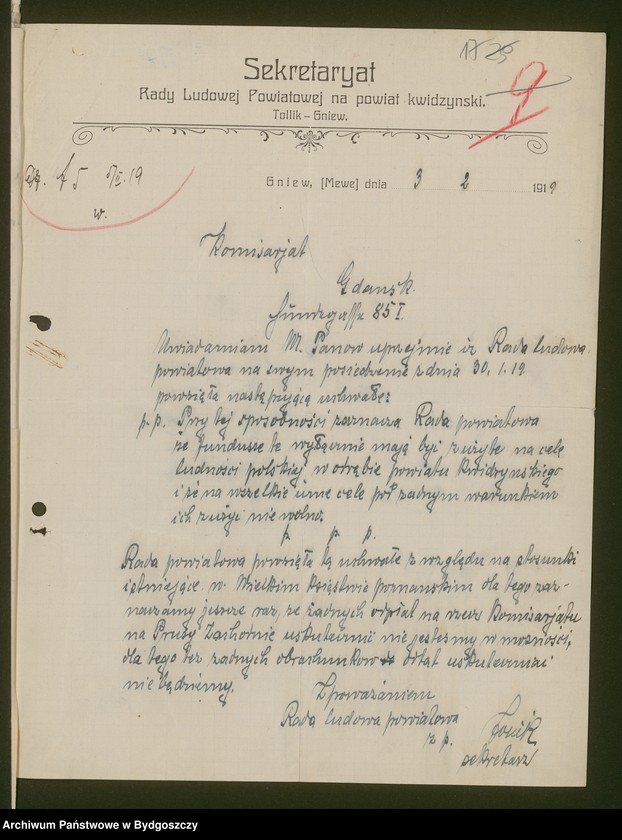 17 29
2
Sekretaryat
Rady Ludowej Powiatowej na powiat kwidzynski.
Tollik – Gniew.
5/II. 19
w.
Gniew, [Mewe] dnia 3 2 1919
Komisarjat
Gdańsk.
Hundegasse 85 I.
Uwiadamiam W. Panow uprzejmie iz Rada ludowa
powiatowa na swym posiedzenie z dnia 30. 1. 19.
powzięła następującą uchwałe:
p. p. Przy tej sposobności zaznacza Rada powiatowa
że fundusze te wyłącznie mają być zużyte na cele
ludności polskiej w obrębie powiatu Kwidzynskiego
i że na wszelkie inne cele pod żadnym warunkiem
ich zużyć nie wolno.
p. p. p.
Rada powiatowa powzięła tą uchwałe z względu na stosunki
istniejące w. Wielkim Księstwie poznanskim dla tego zaz-
naczamy jeszcze raz, ze żadnych odpłat na rzecz Komisarjatu
na Prusy Zachodnie uskutecznić nie jestesmy w możności,
dla tego tez zadnych obrachunkow odtąd uskuteczniać
nie będziemy.
Z poważaniem
Rada ludowa powiatowa
z p.
sekretarz
Archiwum Państwowe w Bydgoszczy